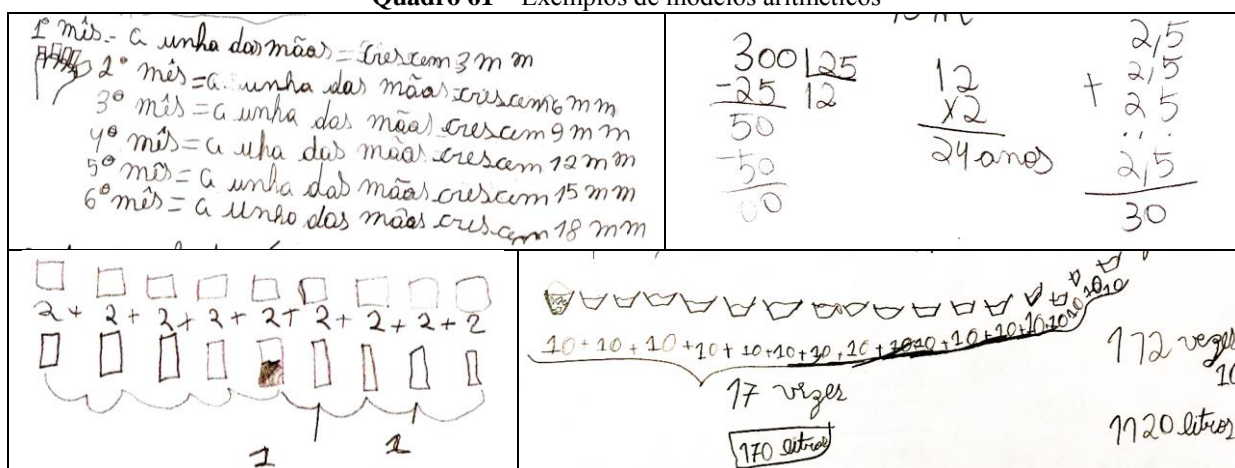 Quadro 01 – Exemplos de modelos aritméticos
1º mês - a unha das mãos = crescem 3 mm
2º mês = a unha das mãos crescem 6 mm
3º mês = a unha das mãos crescem 9 mm
4º mês = a uha das mãos crescem 12 mm
5º mês = a unha das mãos crescem 15 mm
6º mês = a unha das mãos crescem 18 mm
300 25
-25 12
50
-50
00
12
x2
24 anos
2,5
2,5
+ 2,5
...
2,5
30
2+ 2+ 2+ 2+ 2+ 2+ 2+2+2
1 1
10+10+10+10+10+10+10+10+10+10+10+10+10+10+10+10
17 vezes
170 litros
172 vezes
10
1120 litros